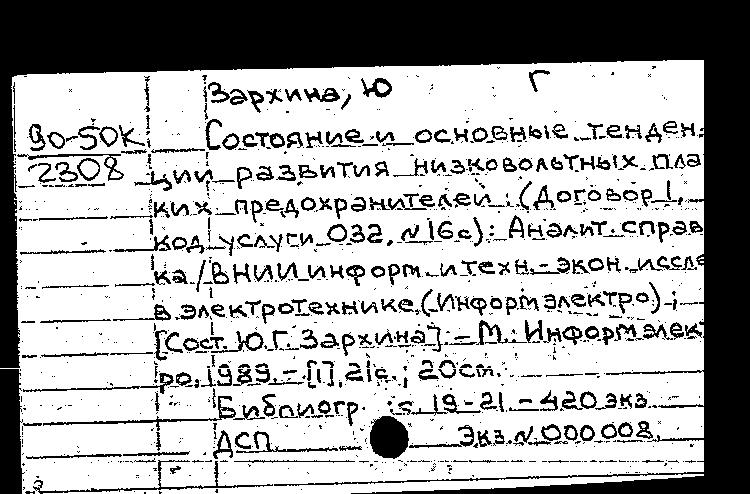 Зархина, Ю Г
90-50К Состояние и основные тенден-
2308 ции развития низковольтных плав
ких предохранителей : (Договор 1,
код услуги 032, N 16с) : Аналит. справ
ка / ВНИИ информ. и техн.-экон. иссле
в электротехнике (Информэлектро) ;
[Сост. Ю.Г. Зархина] - М. : Информэлект
ро, 1989. - [1], 21с. ; 20см.
Библиогр. : с. 19-21. - 420 экз
ДСП. Экз. N 000008.